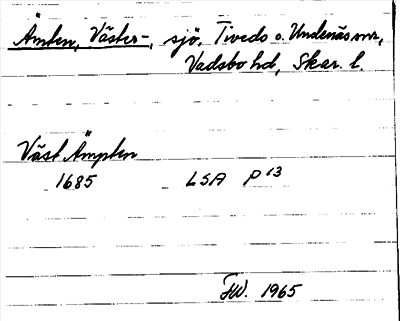 Ämten, Väster-, sjö, Tivedo o. Undenäs snr,
Vadsbo hd, Skar. l.
Väst Ämpten
1685 LSA P 13
FW. 1965